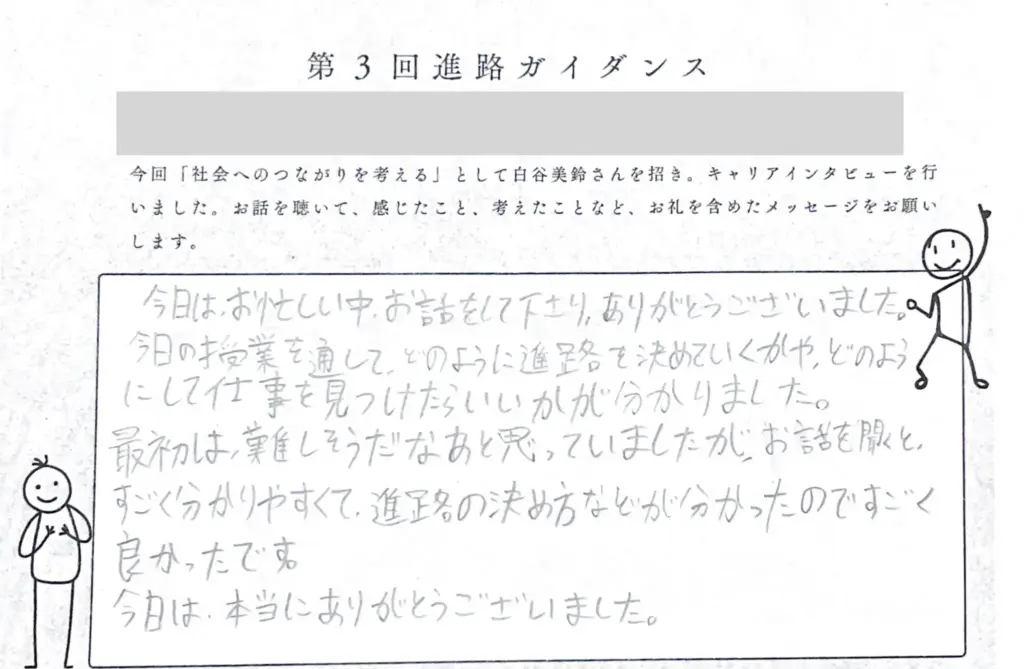 第3回進路ガイダンス
今回「社会へのつながりを考える」として白谷美鈴さんを招き。キャリアインタビューを行
いました。お話を聴いて、感じたこと、考えたことなど、お礼を含めたメッセージをお願い
します。
今日は、お忙しい中、お話をして下さり、ありがとうございました。
今日の授業を通して、どのように進路を決めていくかや、どのよう
にして仕事を見つけたらいいかが分かりました。
最初は、難しそうだなあと思っていましたが、お話を聞くと、
すごく分かりやすくて、進路の決め方などが分かったのですごく
良かったです。
今日は、本当にありがとうございました。